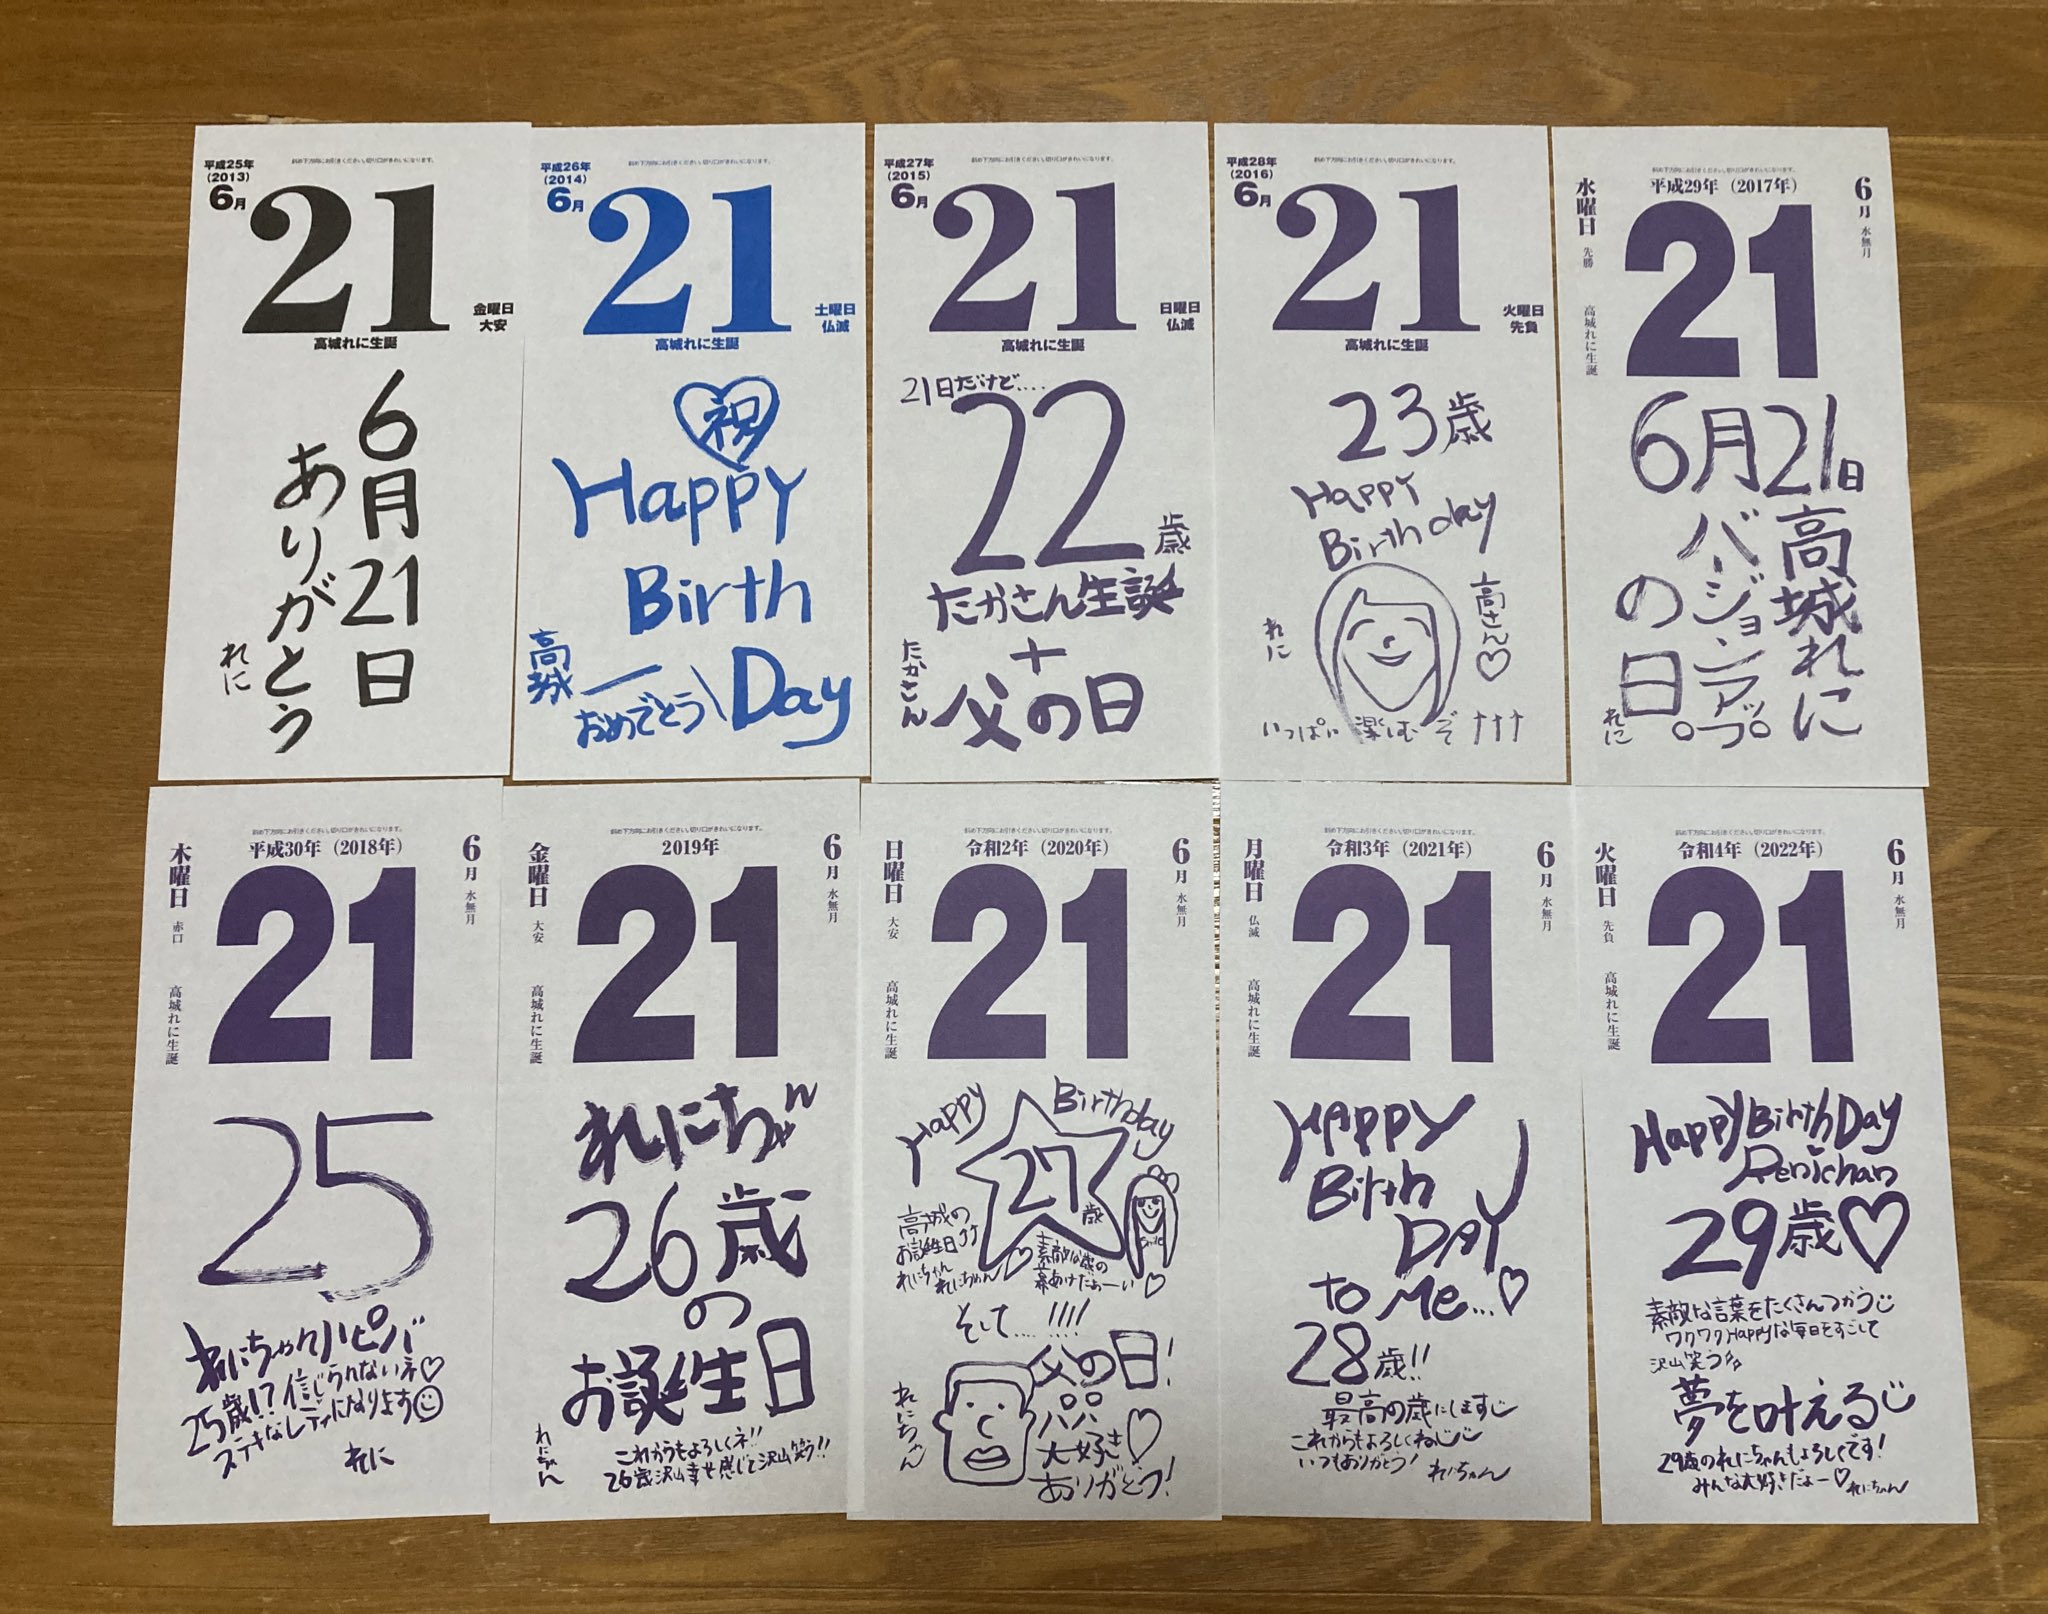 平成25年
(2013)
6月
斜め下方向にお引きください。切り口がきれいになります。
21
金曜日
大安
高城れに生誕
6月21日
ありがとう
れに
平成26年
(2014)
6月
斜め下方向にお引きください。切り口がきれいになります。
21
土曜日
仏滅
高城れに生誕
祝
Happy
Birth
Day
高城
おめでとう
平成27年
(2015)
6月
斜め下方向にお引きください。切り口がきれいになります。
21
日曜日
仏滅
高城れに生誕
21日だけど....
22歳
たかさん生誕
+
父の日
たかさん
平成28年
(2016)
6月
斜め下方向にお引きください。切り口がきれいになります。
21
火曜日
先負
高城れに生誕
23歳
Happy
Birthday
高さん♡
れに
いっぱい楽しむぞ↑↑↑
斜め下方向にお引きください。切り口がきれいになります。
平成29年（2017年）
6月 水無月
水曜日 先勝 高城れに生誕
21
6月21日
高城れに
バージョンアップ
の日。
れに
斜め下方向にお引きください。切り口がきれいになります。
平成30年（2018年）
6月 水無月
木曜日 赤口 高城れに生誕
21
25
れにちゃんハピバ
25歳!?信じられないネ♡
ステキなレディになります☺
れに
斜め下方向にお引きください。切り口がきれいになります。
2019年
6月 水無月
金曜日 大安 高城れに生誕
21
れにちゃん
26歳
の
お誕生日
これからもよろしくネ!!
26歳沢山幸せ感じて沢山笑う!!
れにちゃん
斜め下方向にお引きください。切り口がきれいになります。
令和2年（2020年）
6月 水無月
日曜日 大安 高城れに生誕
21
Happy Birthday
27歳
高城の
お誕生日
れにちゃん
れにちゃん♡
素敵な歳の
幕あけだぁーい♡
そして....!!!!
父の日!
パパ
大好き♡
ありがとう!
れにちゃん
斜め下方向にお引きください。切り口がきれいになります。
令和3年（2021年）
6月 水無月
月曜日 仏滅 高城れに生誕
21
HAPPY
Birth
DAY
to Me...♡
28歳!!
最高の歳にします
これからもよろしくね
いつもありがとう!
れにちゃん
斜め下方向にお引きください。切り口がきれいになります。
令和4年（2022年）
6月 水無月
火曜日 先負 高城れに生誕
21
Happy Birth Day
Renichan
29歳♡
素敵な言葉をたくさんつかう
ワクワクHappyな毎日をすごして
沢山笑う
夢を叶える
29歳のれにちゃんもよろしくです!
みんな大好きだよー♡
れにちゃん